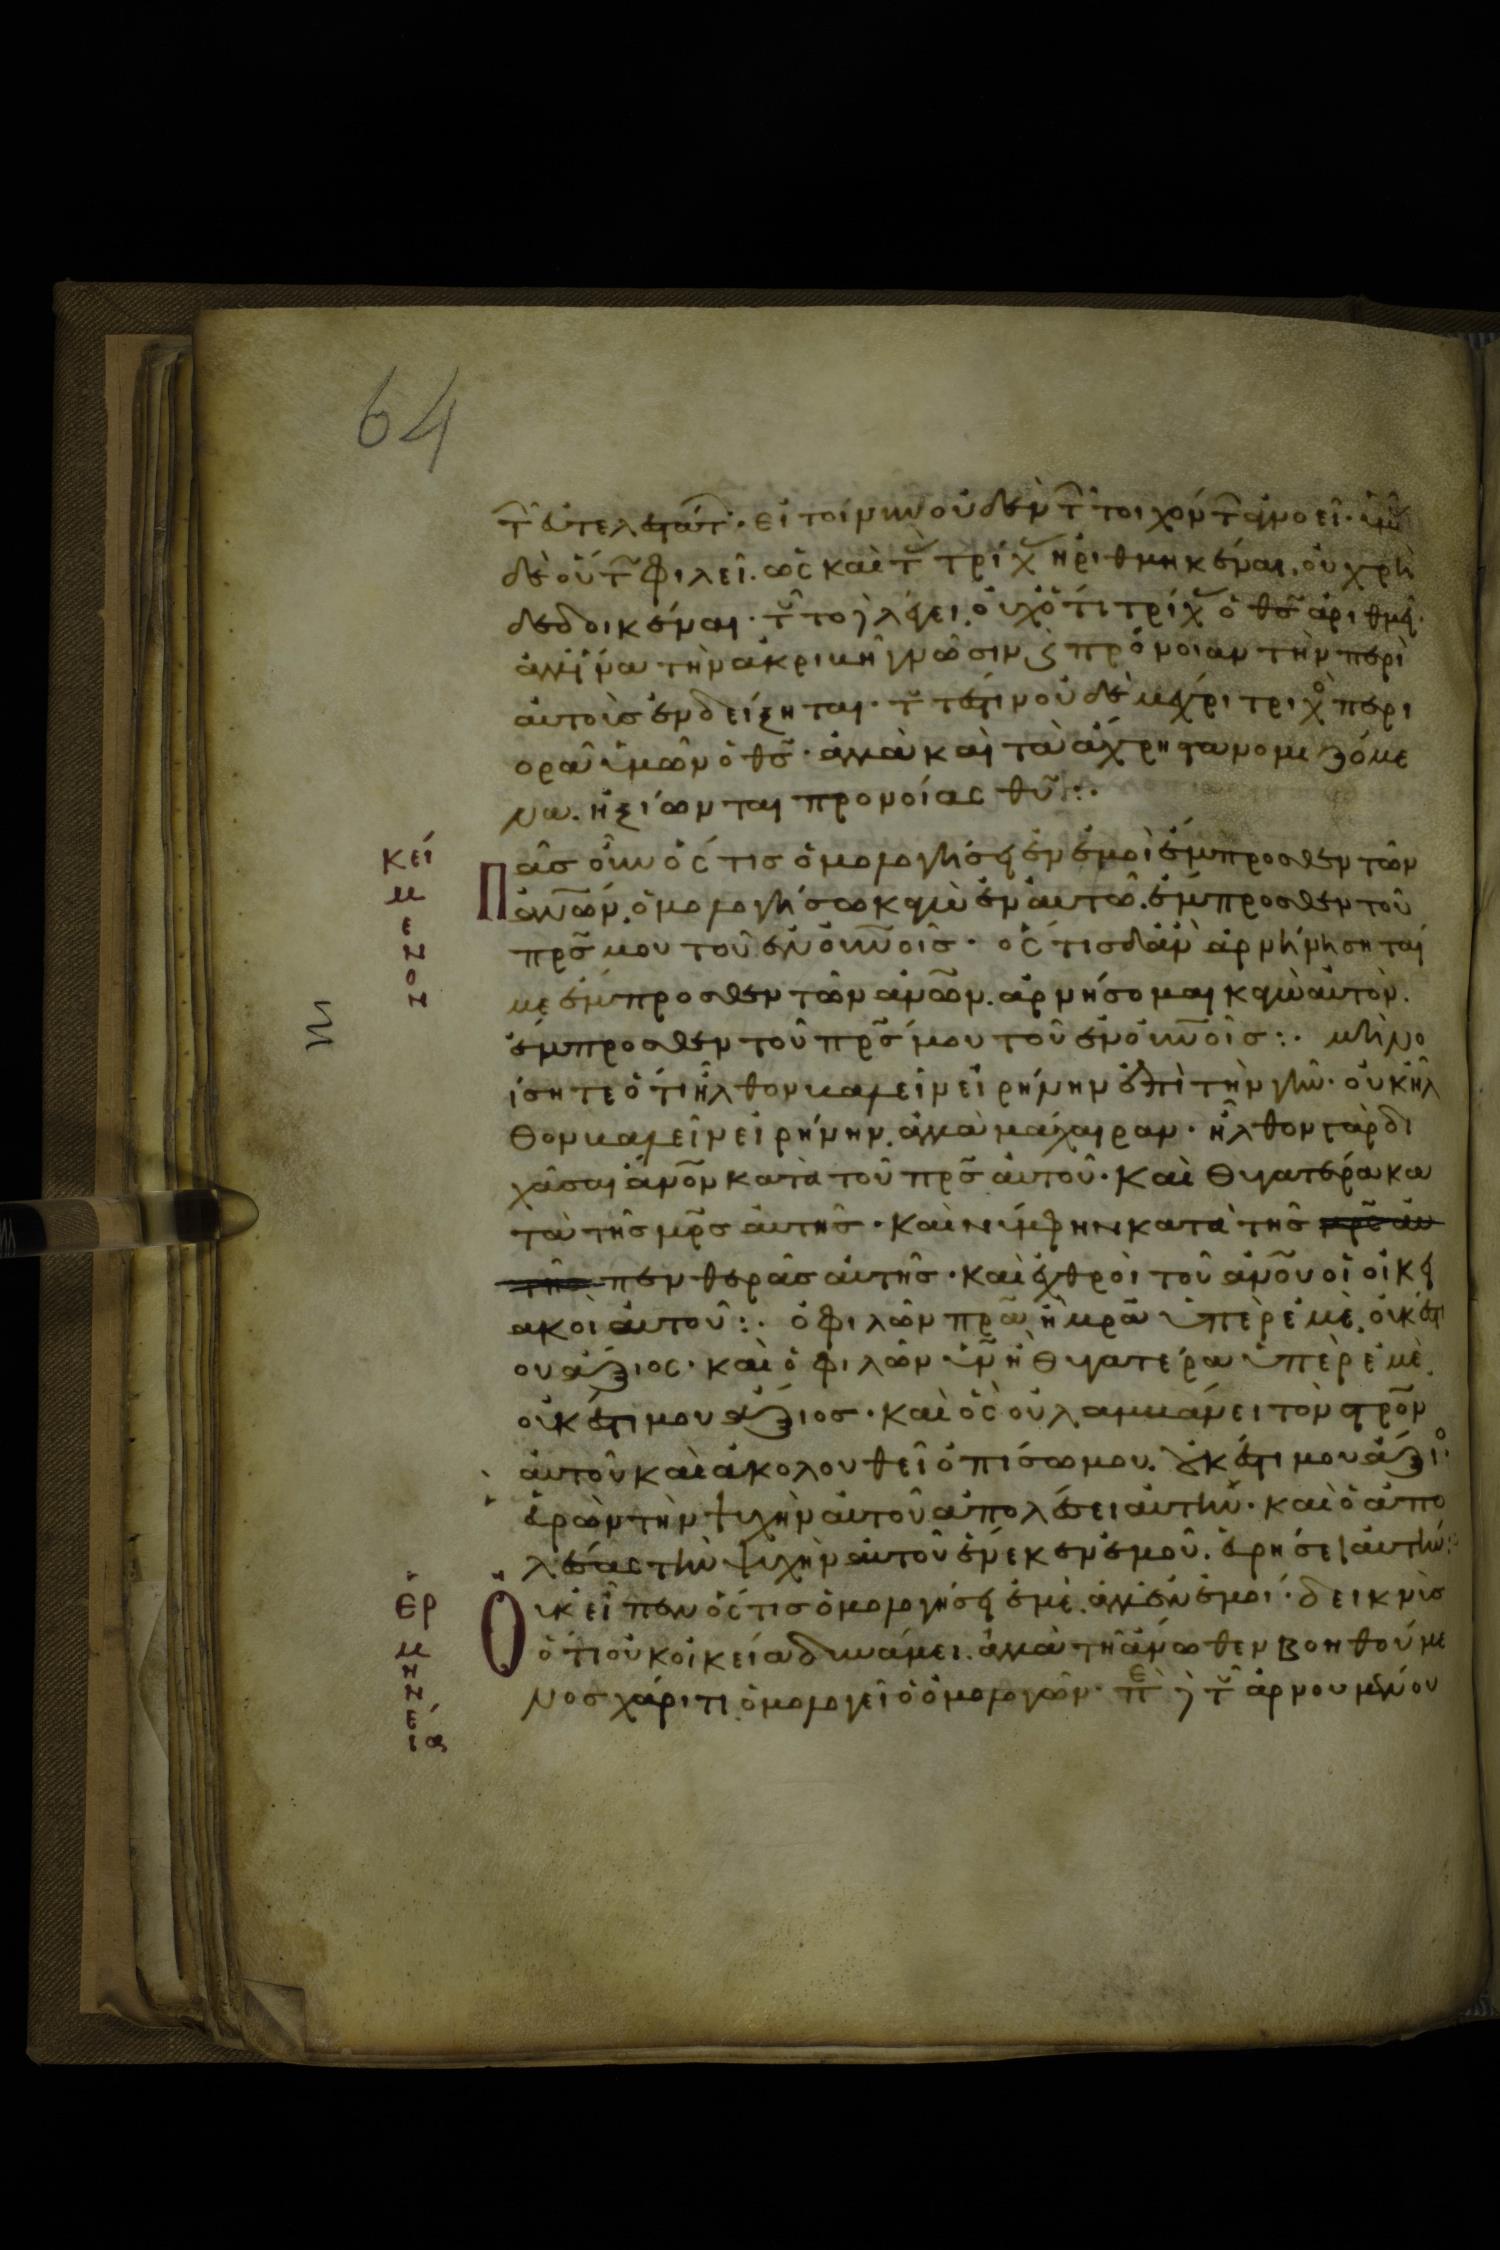 64
τ̑ εὐτελεστάτ· εἰ τοίνυν οὐδὲν τ̑ τοιχόντ ἀγνοεῖ· ὑμ
δὲ οὕτ φιλεῖ. ὡς καὶ τ τρίχ ἠριθμηκέναι. οὐ χρὴ
δεδοικέναι· τ̑το λέγει. οὐχ ὅτι τρίχ ὁ θς̄ ἀριθμεῖ·
ἀλλ' ἵνα τὴν ἀκριβῆ γνῶσιν ϛ πρόνοιαν τὴν περὶ
αὐτοὺς ἐνδείξηται· τ τέστιν οὐδὲ μέχρι τριχὸ περι
ορᾶ ὑμῶν ὁ θς̄· ἀλλὰ καὶ τὰ ἄχρηστα νομιζόμε
να. ἠξίωνται προνοίας θῡ:·
κεί
μ
ε
ν
ο
ν
Πᾶς οὖν ὅς τις ὁμολογήσει ἐν ἐμοὶ ἔμπροσθεν τῶν
ἀνῶν. ὁμολογήσω κἀγὼ ἐν αὐτῶ. ἔμπροσθεν τοῦ
πρς̄ μου τοῦ ἐν οὐνοῖς· ὅς τις δ' ἂν ἀρνήνησηταί
με ἔμπροσθεν τῶν ἀνῶν. ἀρνήσομαι κἀγὼ αὐτὸν.
ἔμπροσθεν τοῦ πρς̄ μου τοῦ ἐν οὐνοῖς:· μὴ νο
ίσητε ὅτι ἦλθον βαλεῖν εἰρήνην ἐπὶ τὴν γῆν· οὐκ ἦλ
θον βαλεῖν εἰρήνην. ἀλλὰ μάχαιραν· ἦλθον γὰρ δι
χᾶσαι ἄνον κατὰ τοῦ πρς̄ αὐτοῦ· Καὶ θυγατέρα κα
τὰ τῆς μρς̄ αὐτῆς· Καὶ νύμφην κατὰ τῆς μρς̄ αὐ
τῆς πενθερᾶς αὐτῆς· καὶ ἐχθροὶ τοῦ ἀνου οἱ οἰκει
ακοὶ αὐτοῦ:· ὁ φιλῶν πρᾱ ἢ μρᾱ ὑπὲρ ἐμὲ. οὐκ ἔστι
μου ἄξιος· καὶ ὁ φιλῶν ὑν̄ ἢ θυγατέρα ὑπὲρ ἐμὲ.
οὐκ ἔστι μου ἄξιος· Καὶ ὃς οὐ λαμβάνει τὸν στρον
αὐτοῦ καὶ ἀκολουθεῖ ὀπίσω μου. οὐκ ἔστι μου ἄξιο·
εὑρὼν τὴν ψυχὴν αὐτοῦ ἀπολέσει αὐτήν· καὶ ὁ ἀπο
λέσας τὴν ψυχὴν αὐτοῦ ἕνεκεν ἐμοῦ. εὑρήσει αὐτήν:
ερ
μ
η
ν
ε
ία
Οὐκ εἶπεν ὅς τις ὁμολογήσει ἐμὲ. ἀλλ' ἐν ἐμοί· δεικνὺς
ὅτι οὐκ οἰκεία δυνάμει. ἀλλὰ τῆ ἄνωθεν βοηθούμε
νος χάριτι ὁμολογεῖ ὁ ὁμολογῶν· πε τ̑ ἀρνουμένου